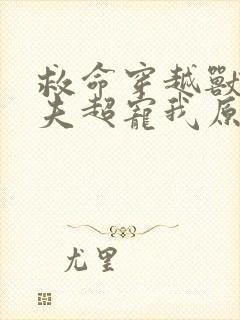 救命穿越獸
夫超寵我原
尤里